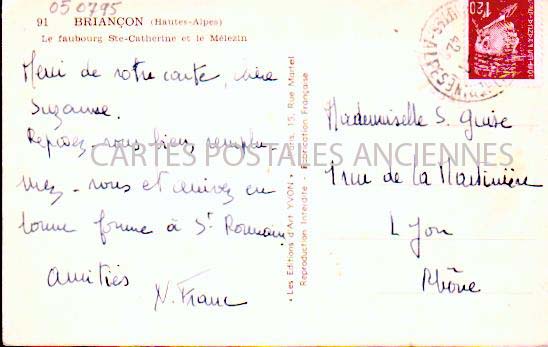 050795
91 BRIANÇON (Hautes-Alpes)
Le faubourg Ste-Catherine et le Mélezin
Merci de votre carte, chère
Suzanne.
Reposez-vous bien, remplu-
mez-vous et arrivez en
bonne forme à St Romain.
Amitiés
N. Franc
CARTES POSTALES ANCIENNES
« Les Editions d'Art YVON » Paris, 15, Rue Martel
Reproduction Interdite - Fabrication Française
1F20
42
Mademoiselle S. Guise
1 rue de la Martinière
Lyon
Rhône